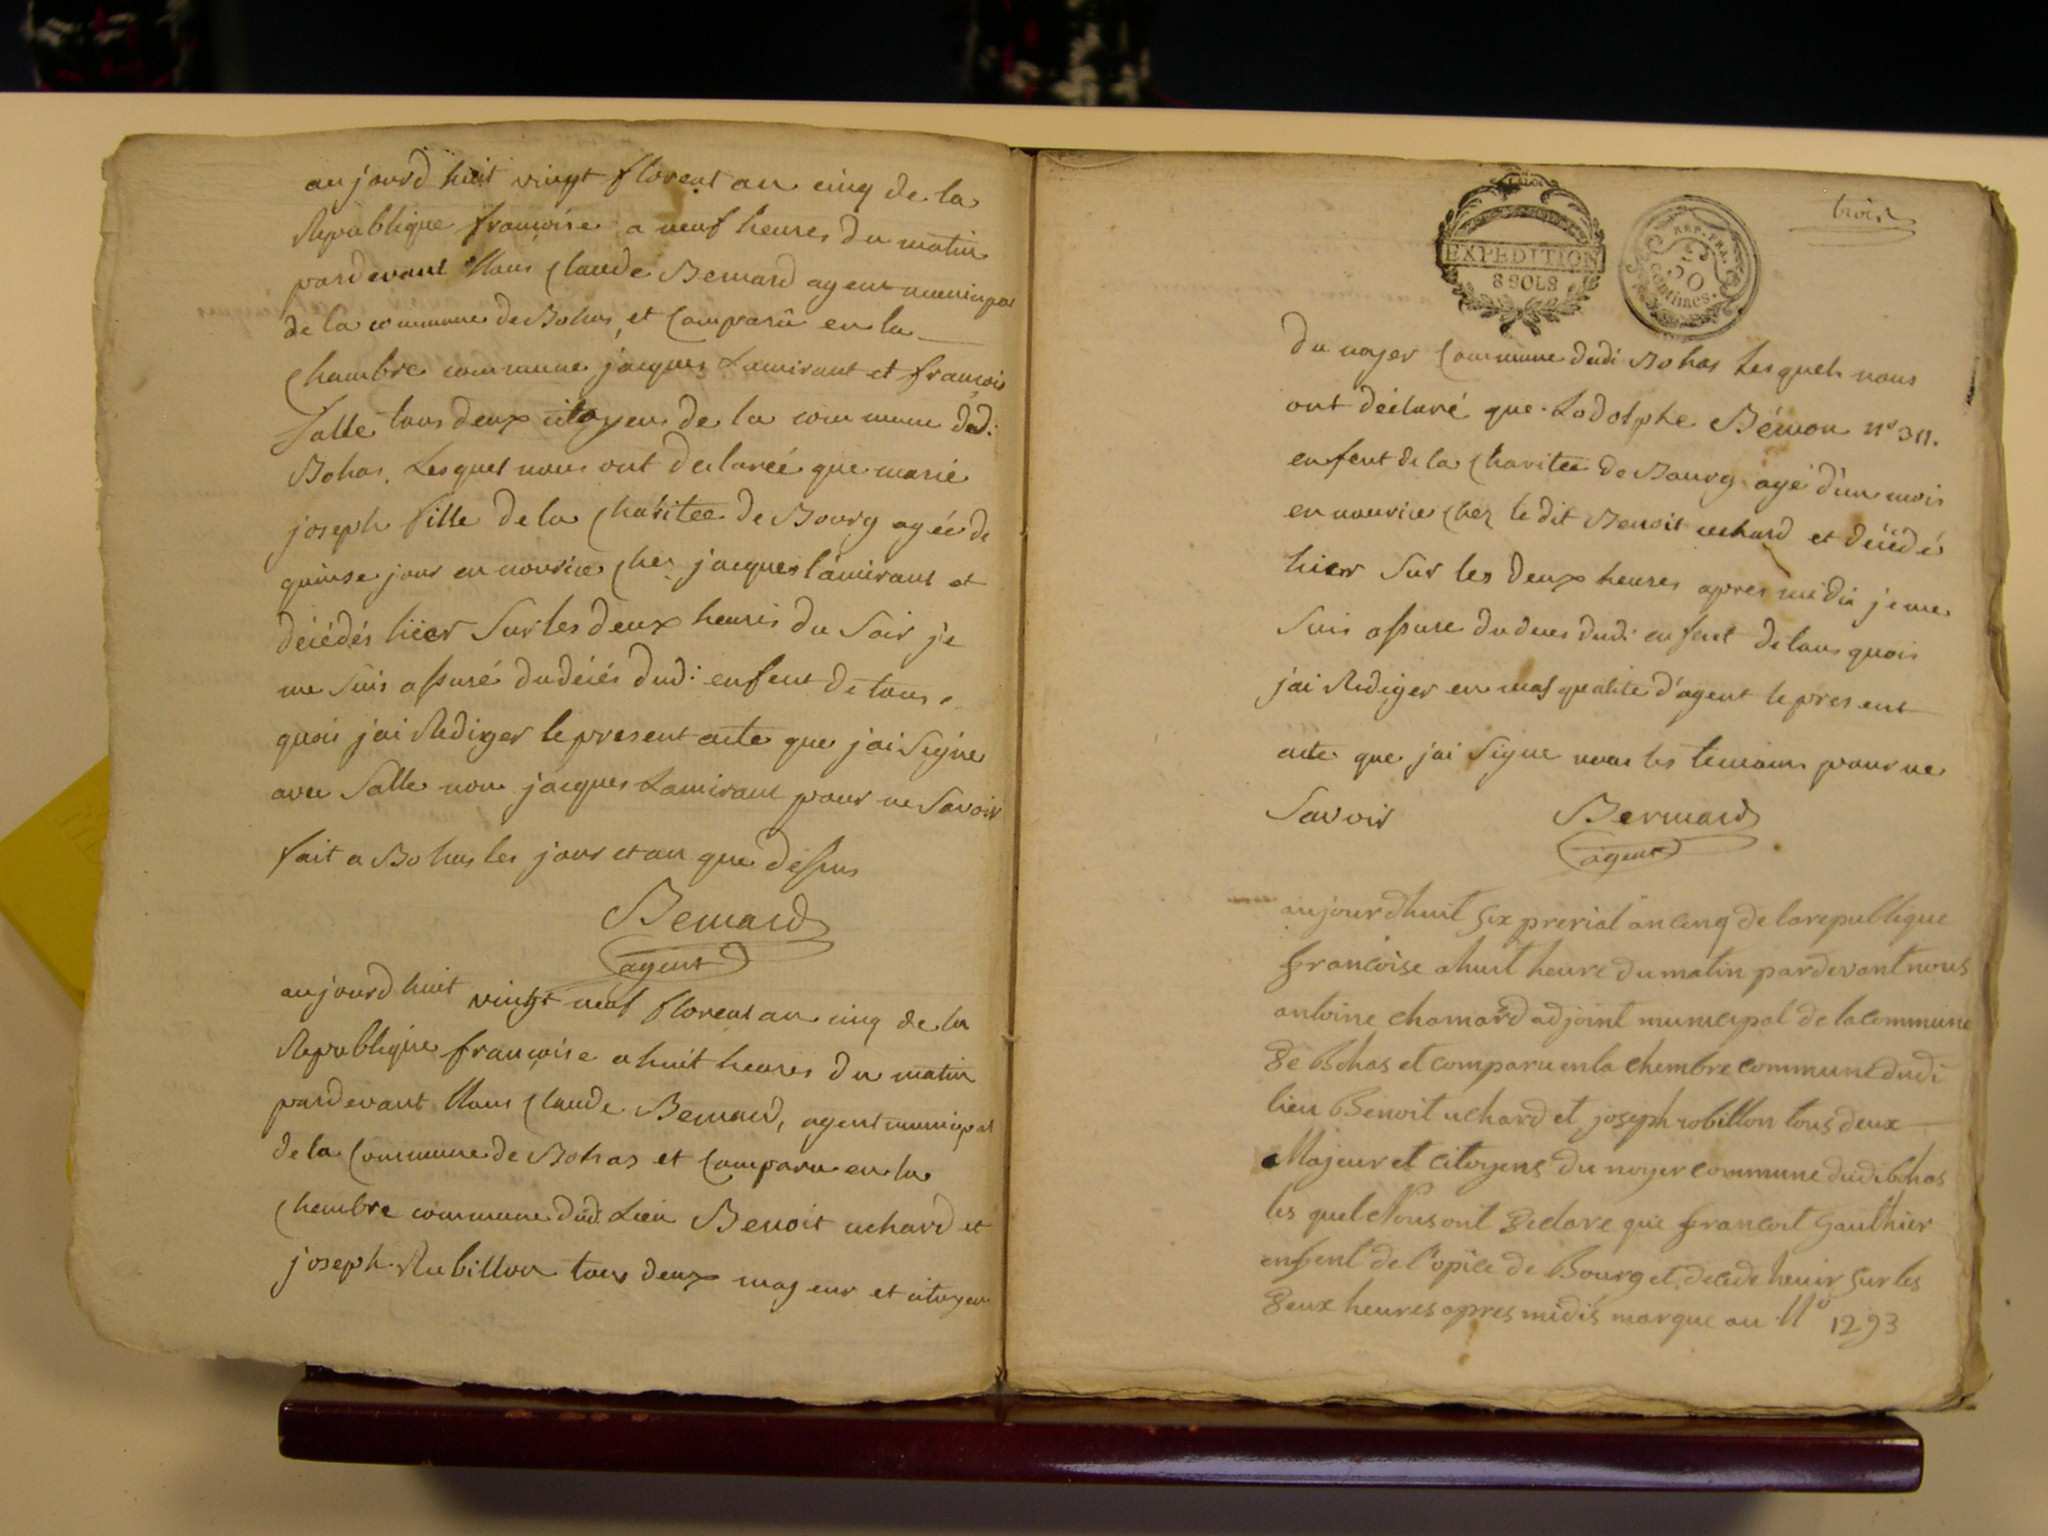 aujourd huit vingt floreal an cinq de la
Republique francoise a neuf heures du matin
pardevant Nous Claude Bernard agent municipal
de la commune de Bohas, et Comparû en la
Chambre commune jacques Lamirant et francois
Salle tous deux citoyens de la commune dud:
Bohas. Lesquel nous ont declareé que marie
joseph fille de la Charitee de Bourg agée de
quinse jour en nourice Chez jacques lamirant et
décédés hieer Sur les deux heures du Soir je
me suis assuré du décés dud: enfent de tous
quois jai Rediger le present acte que jai Signe
avec Salle non jacques Lamirant pour ne Savoir
fait a Bohas les jour et an que dessus
Bernard
agent
aujourd huit vingt neuf floreal an cinq de la
Republique francoise a huit heures du matin
pardevant Nous Claude Bernard, agent municipal
de la Commune de Bohas et Comparu en la
Chembre commune dud: Lieu Benoit uchard et
joseph Rubillon tous deux majeur et citoyen
EXPEDITION
8 SOLS
REP. FRA.
50
Centimes.
trois
du noyer Commune dudi Bohas Lesquels nous
ont déclaré que Lodolphe Bémon n° 311.
enfent de la Charitee de Bourg agé d'un mois
en nourice Chez le dit Benoit uchard et décédé
hieer Sur les deux heures apres midi je me
Suis assure du deces dud: enfent de tous quois
jai Rediger en mas qualite d'agent le present
acte que jai Signe nous les temoins pour ne
Savoir Bernard
agent
aujourdhuit six prerial an cinq de la republique
francoise a huit heure du matin pardevant nous
antoine chanard adjoint municipal de la commune
de Bohas et comparu en la chembre commune dudi
lieu Benoit uchard et joseph robillon tous deux
Majeur et citoyens du noyer commune dudi bohas
les quel Nous ont declare que francoit gaulhier
enfent de l'opice de Bourg et decede heuir sur les
deux heures apres midis marque au N° 1293